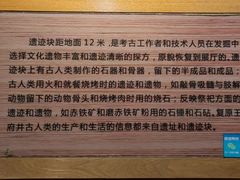 遗迹块距地面 12 米,是考古工作者和技术人员在发掘中
选择文化遗物丰富和遗迹清晰的探方,原貌恢复到展厅的。
迹块上有古人类制作的石器和骨器,留下的半成品和成品;
古人类用火和就餐烧烤时的遗迹和遗物,如敲骨吸髓与肢解
动物留下的动物骨头和烧烤肉时用的烧石;反映祭祀方面的
遗迹和遗物,如赤铁矿和磨赤铁矿粉用的石锤和石砧。复原王
府井古人类的生产和生活的信息都来自遗址和遗迹块。